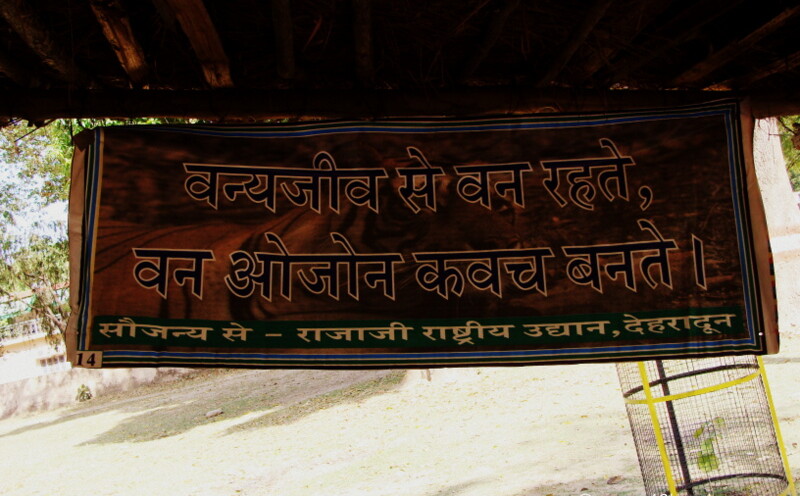 वन्यजीव से वन रहते,
वन ओजोन कवच बनते।
सौजन्य से - राजाजी राष्ट्रीय उद्यान, देहरादून
14